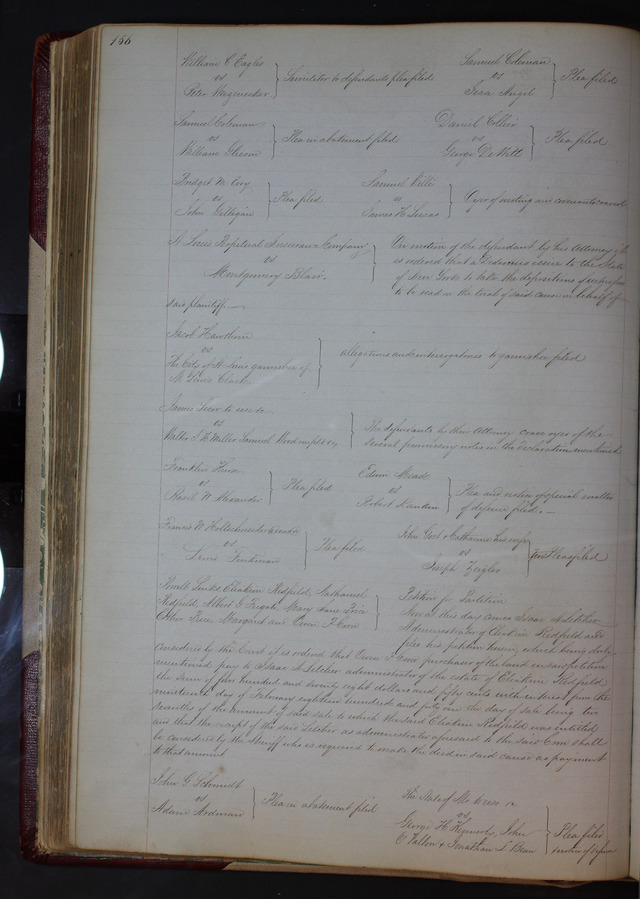 166
William C Eagles
vs
Peter Wagenecker
Similiter to defendants plea filed
Samuel Coleman
vs
Angel
Plea filed
Samuel Coleman
vs
William Gleeson
Plea in abatement filed
Daniel Collier
vs
George DeWitt
Plea filed
Bridget
vs
John
Plea filed
Samuel Willi
vs
James H Lucas
Oyer of writing and covenants craved
St Louis Perpetual Insurance Company
vs
Montgomery Blair.
On motion of the defendant by his Attorney it
is ordered that a Dedimus issue to the State
of New York to take the depositions
to be read in the trial of said cause in behalf of
said plaintiff.
Jacob Hawthorn
vs
The City of St Louis garnishee of
M. Lewis Clark
allegations and interrogatories to garnishee filed
James to use &c
vs
Walter Miller Samuel
The defendants by their Attorney crave oyer of the
several promissory notes in the declaration mentioned
Franklin
vs
Basil W Alexander
Plea filed
Edwin Mead
vs
Robert Rankin
Plea and notice of special matter
of defence filed. —
Francis W
vs
Louis
Plea filed
John God & Catharine his wife
vs
Joseph Zeigler
Pleas filed
Powell Links, Eliakim Redfield, Nathaniel
Redfield, Albert G Mary Jane Price
Price Margaret and Owen
Petition for Partition
Now at this day comes Isaac A Letcher
Administrator of Eliakim Redfield and
files his petition herein, which being duly
considered by the Court it is ordered that Owen purchaser of the land in said petition
mentioned, pay to Isaac A Letcher administrator of the estate of Eliakim Redfield
the sum of five hundred and twenty eight dollars and fifty cents with interest from the
nineteenth day of February eighteen hundred and fifty one the day of sale being two
sevenths of the amount of said sale to which the said Eliakim Redfield was entitled
and that the receipt of the said Letcher as administrator aforesaid to the said shall
be considered by the Sheriff who is required to make the deed in said cause as payment
to that amount
John G Schmidt
vs
Adam Hodman
Plea in abatement filed
The State of Mo to use &c
vs
George H Kennerly, John
O'Fallon & Jonathan L Bean
Plea filed